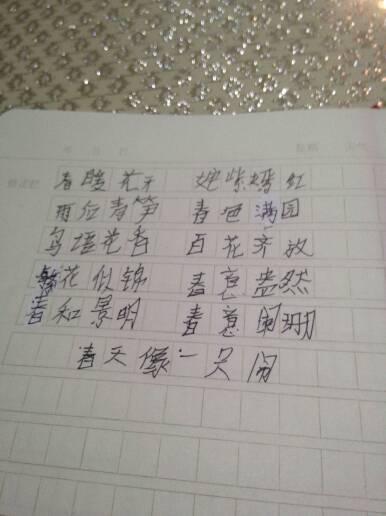 春暖花开 姹紫嫣红
雨后春笋 春色满园
鸟语花香 百花齐放
繁花似锦 春意盎然
春和景明 春意阑珊
春天像一只闹